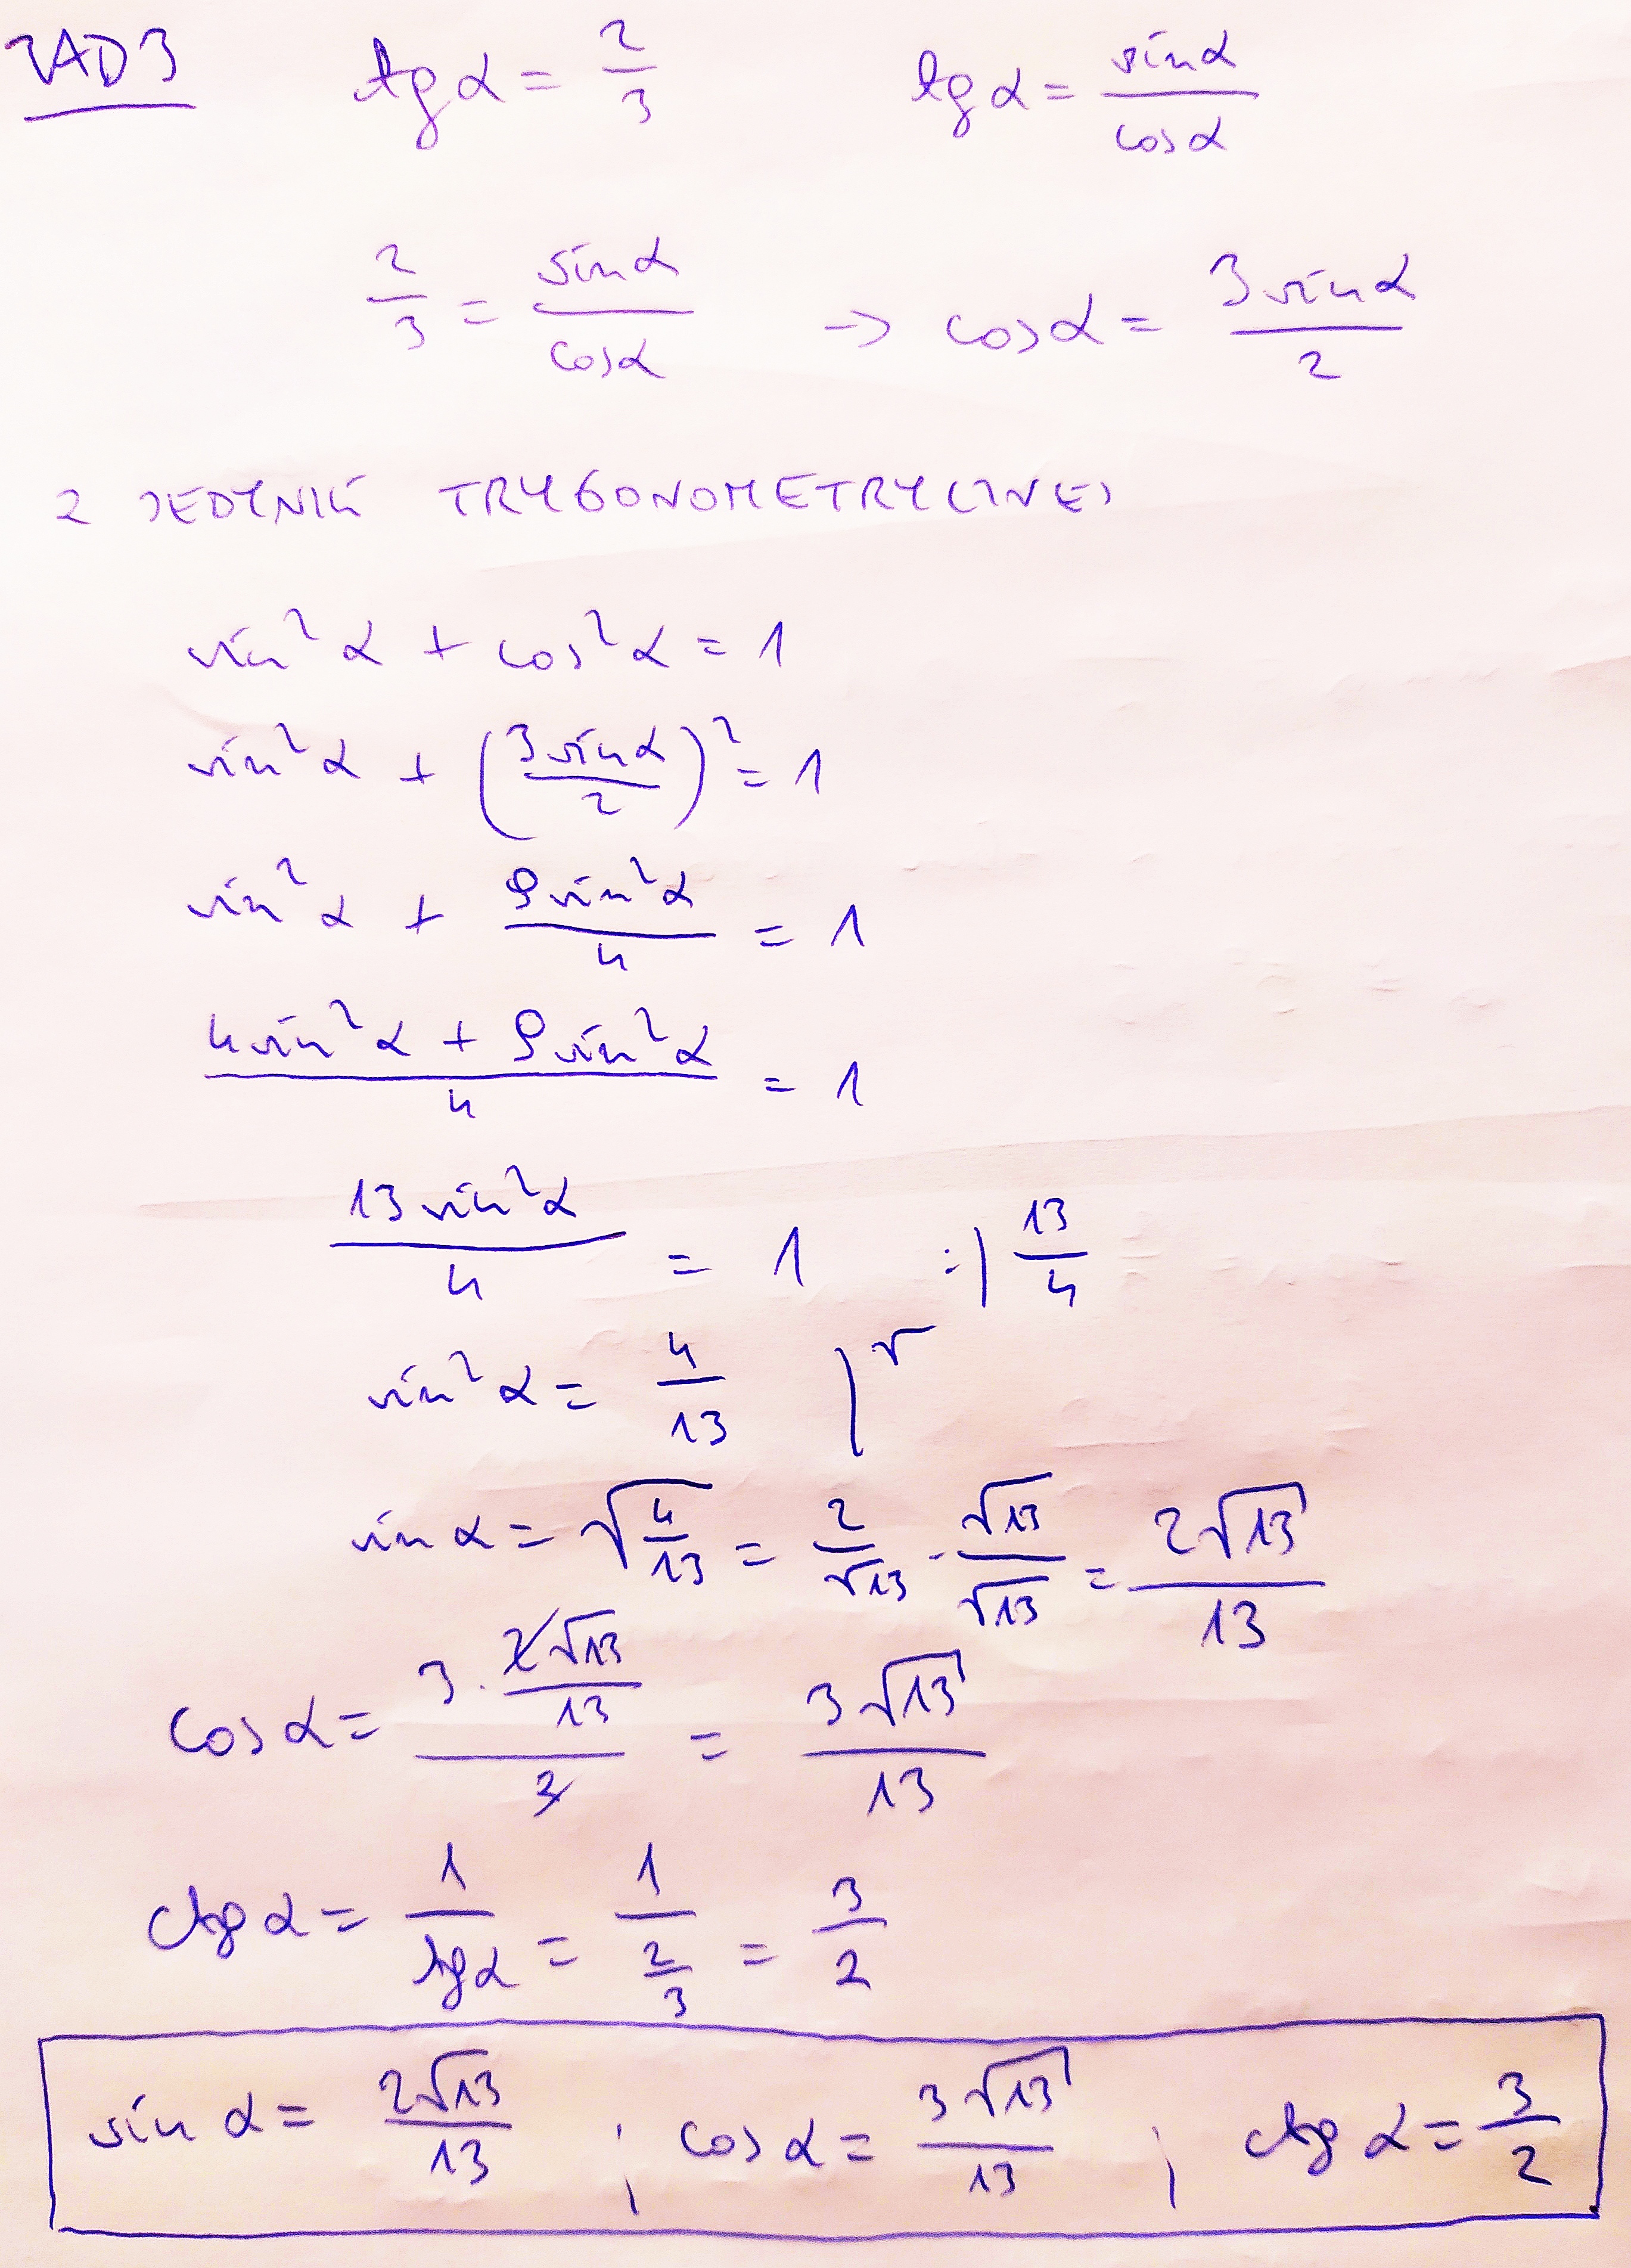 ZAD 3 tg α = 2/3 tg α = sin α/cos α
2/3 = sin α/cos α → cos α = 3 sin α/2
Z JEDYNKI TRYGONOMETRYCZNEJ
sin² α + cos² α = 1
sin² α + (3 sin α/2)² = 1
sin² α + 9 sin² α/4 = 1
4 sin² α + 9 sin² α/4 = 1
13 sin² α/4 = 1 :| 13/4
sin² α = 4/13 |√
sin α = √(4/13) = 2/√13 · √13/√13 = 2√13/13
cos α = 3 · 2√13/13/2 = 3√13/13
ctg α = 1/tg α = 1/(2/3) = 3/2
sin α = 2√13/13 ; cos α = 3√13/13 ; ctg α = 3/2